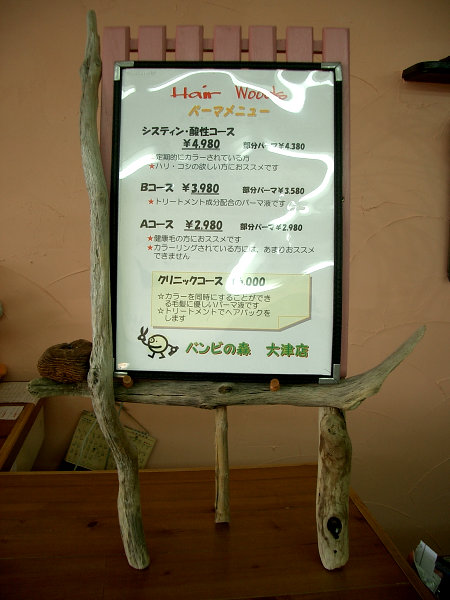 Hair Woods
パーマメニュー
システィン・酸性コース
￥4,980 部分パーマ￥4,380
★定期的にカラーされている方
★ハリ・コシの欲しい方におススメです
Bコース ￥3,980 部分パーマ￥3,580
★トリートメント成分配合のパーマ液です
Aコース ￥2,980 部分パーマ￥2,980
★健康毛の方におススメです
★カラーリングされている方には、あまりおススメ
できません
クリニックコース
☆カラーを同時にすることができ
る毛髪に優しいパーマ液です
☆トリートメントでヘアパックを
します
バンビの森 大津店